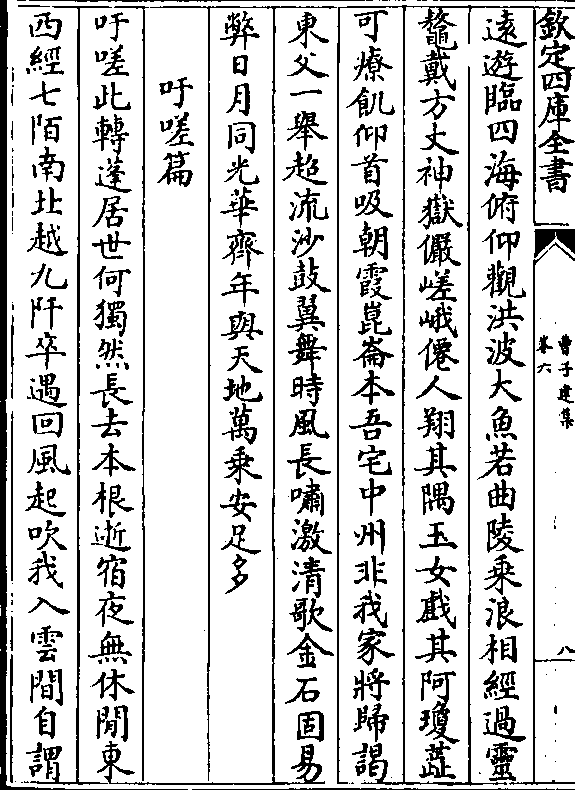 欽定四庫全書
曹子建集
卷六
八
遠遊臨四海俯仰觀洪波大魚若曲陵乘浪相經過靈
鼇戴方丈神嶽儼嵯峨僊人翔其隅玉女戲其阿瓊蘂
可療飢仰首吸朝霞崑崙本吾宅中州非我家將歸謁
東父一舉超流沙鼓翼舞時風長嘯激清歌金石固易
弊日月同光華齊年與天地萬乘安足多
吁嗟篇
吁嗟此轉蓬居世何獨然長去本根逝宿夜無休閒東
西經七陌南北越九阡卒遇回風起吹我入雲間自謂